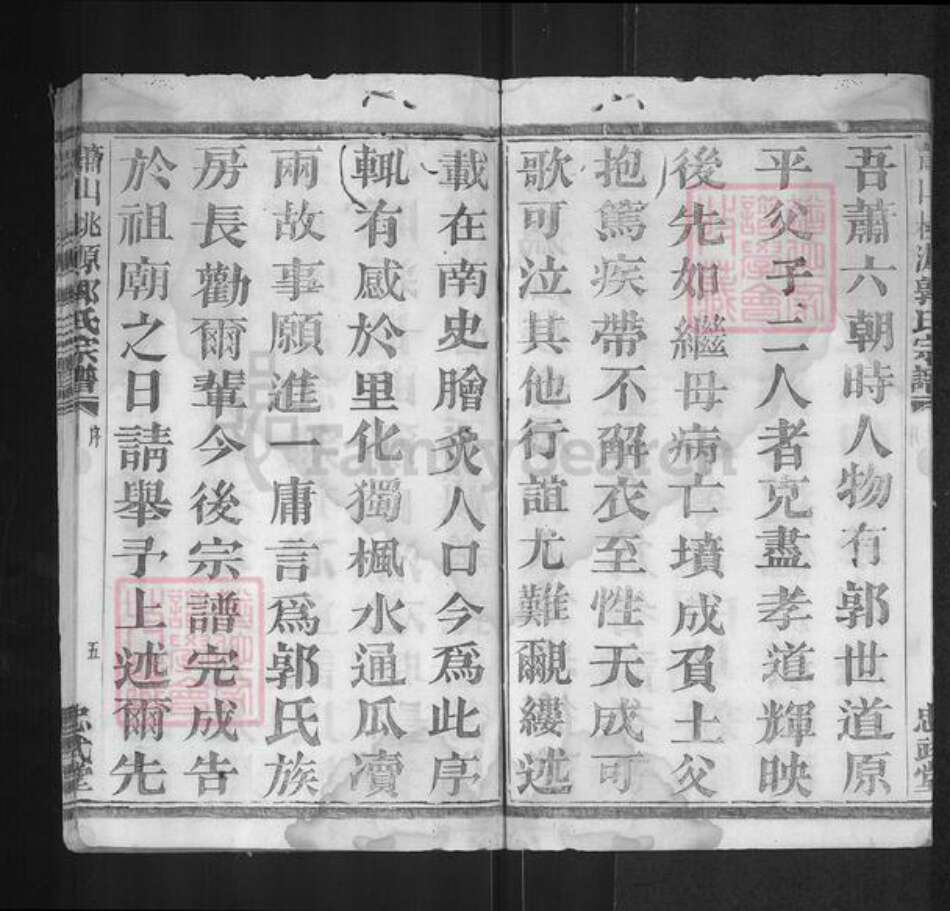 吾蕭六朝時人物有郭世道原
平父子二人者克盡孝道輝映
後先如繼母病亡墳成負土父
抱篤疾帶不解衣至性天成可
歌可泣其他行誼尤難覼縷述
載在南史膾炙人口今爲此序
輒有感於里化獨楓水通瓜瀆
兩故事願進一庸言爲郭氏族
房長勸爾輩今後宗譜完成告
於祖廟之日請舉予上述爾先
蕭山桃源郭氏宗譜
序
五
忠武堂
FamilySearch